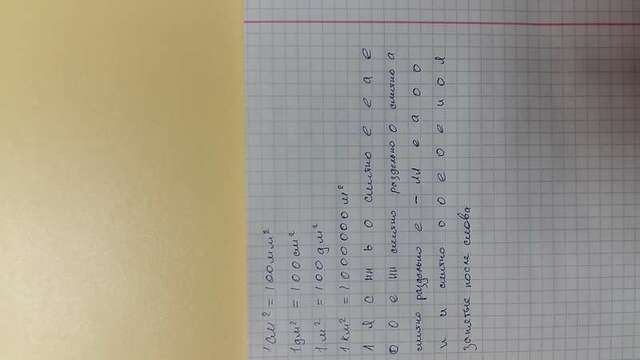 1см² = 100мм²
1дм² = 100см²
1м² = 100дм²
1км² = 1000000м²
1 я с нн ь о слитно е е а е
о о е нн слитно раздельно о слитно а
слитно раздельно е – лл е а о о
и и слитно о о е о е и о я
запятые после слова